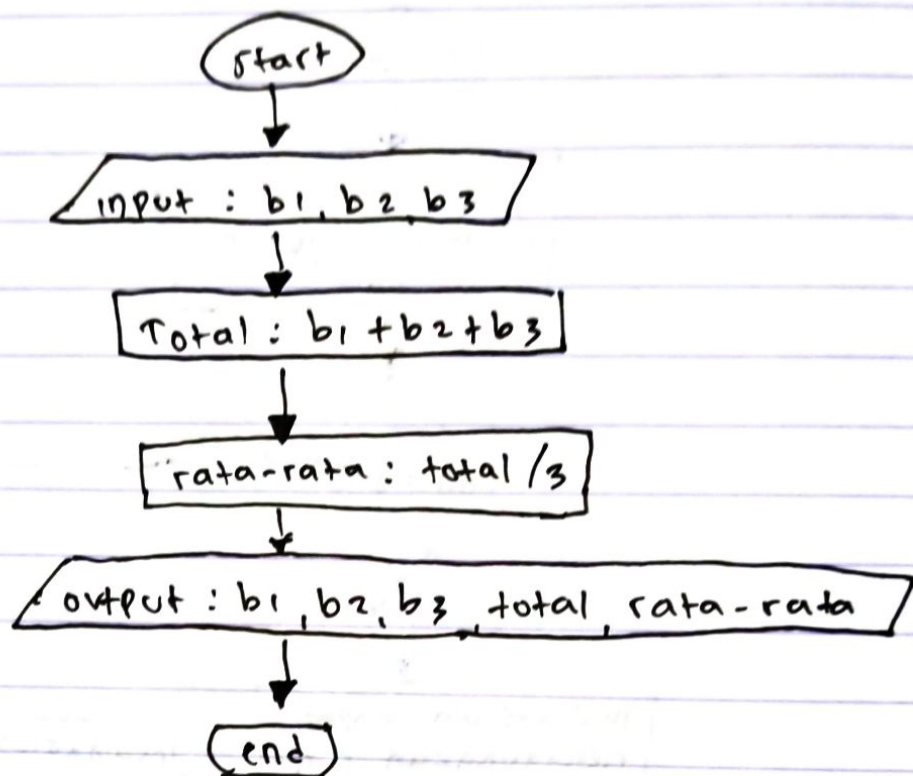 start
input : b1, b2, b3
Total : b1 + b2 + b3
rata-rata : total /3
output : b1, b2, b3, total, rata-rata
end